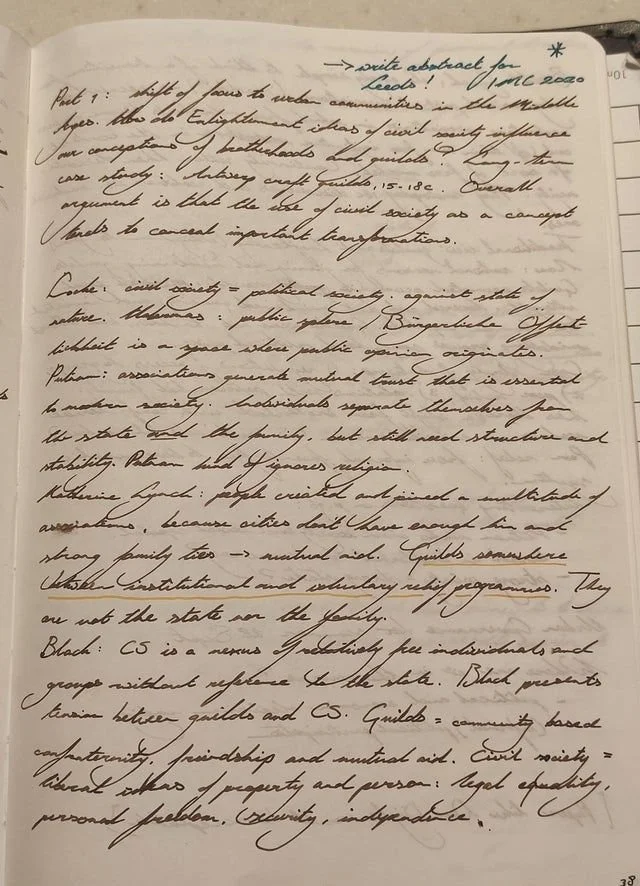 → write abstract for *
Leeds! IMC 2020
Part 1: shift of focus to urban communities in the Middle
Ages. How do Enlightenment ideas of civil society influence
our conceptions of brotherhoods and guilds? Long-term
case study: Antwerp craft guilds, 15-18c. Overall
argument is that the use of civil society as a concept
tends to conceal important transformations.
Locke: civil society = political society. against state of
nature. Habermas: public sphere / Bürgerliche Öffent
lichkeit is a space where public opinion originates.
Putnam: associations generate mutual trust that is essential
to modern society. Individuals separate themselves from
the state and the family, but still need structure and
stability. Putnam kind of ignores religion.
Katherine Lynch: people created and joined a multitude of
associations, because cities don't have enough kin and
strong family ties → mutual aid. Guilds somewhere
between institutional and voluntary relief programmes. They
are not the state nor the family.
Black: CS is a nexus of relatively free individuals and
groups without reference to the state. Black presents
tension between guilds and CS. Guilds = community based
confraternity, friendship and mutual aid. Civil society =
liberal ideas of property and person: legal equality,
personal freedom, security, independence.
38